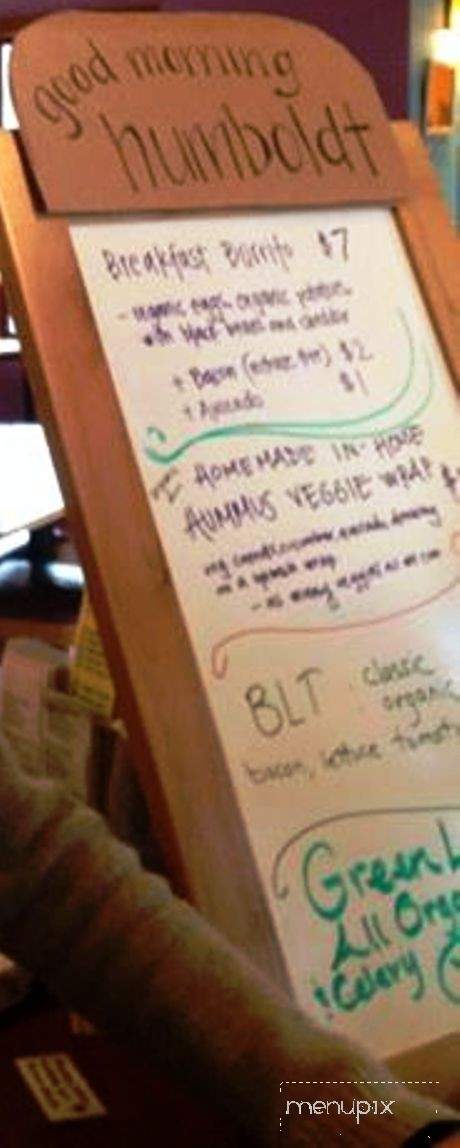 good morning
humboldt
Breakfast Burrito $7
- organic eggs, organic potatoes
with black beans and cheddar
+ Bacon (nitrate free) $2
+ Avocado $1
HOMEMADE IN-HOME
HUMMUS VEGGIE WRAP
in a spinach wrap
- as many veggies as we can
BLT : classic
organic
bacon, lettuce tomato
Green L
All Orga
! Celery
menupix